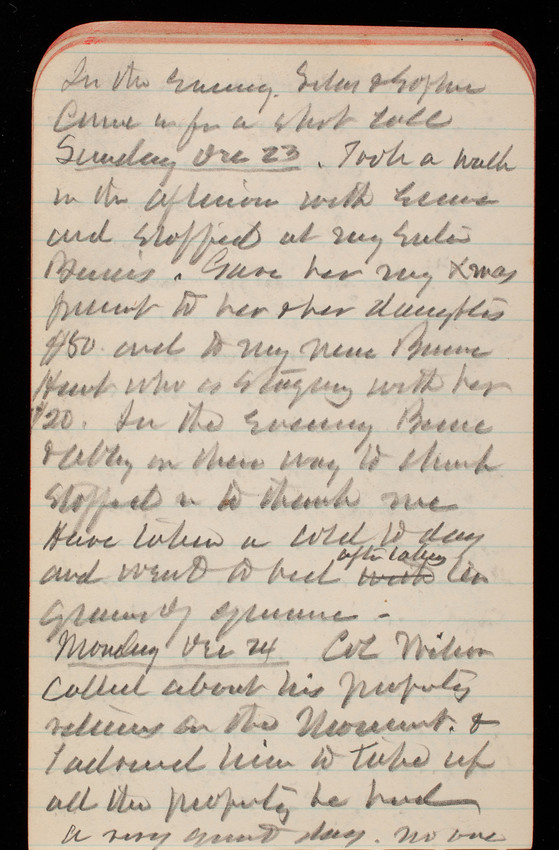 In the evening Silas & Sophie
came in for a short call
Sunday Dec 23. Took a walk
in the afternoon with
and stopped at my Sister
Gave her my Xmas
present to her & her daughters
$50 and to my niece
who is staying with her
$20. In the Evening
& Abby on their way to church
stopped in to thank me
Have taken a cold to day
and went to bed after taking ten
grains of quinine -
Monday Dec 24 Col Wilson
called about his property
returns on the Monument. &
I advised him to take up
all the property he had
a very quiet day. no one